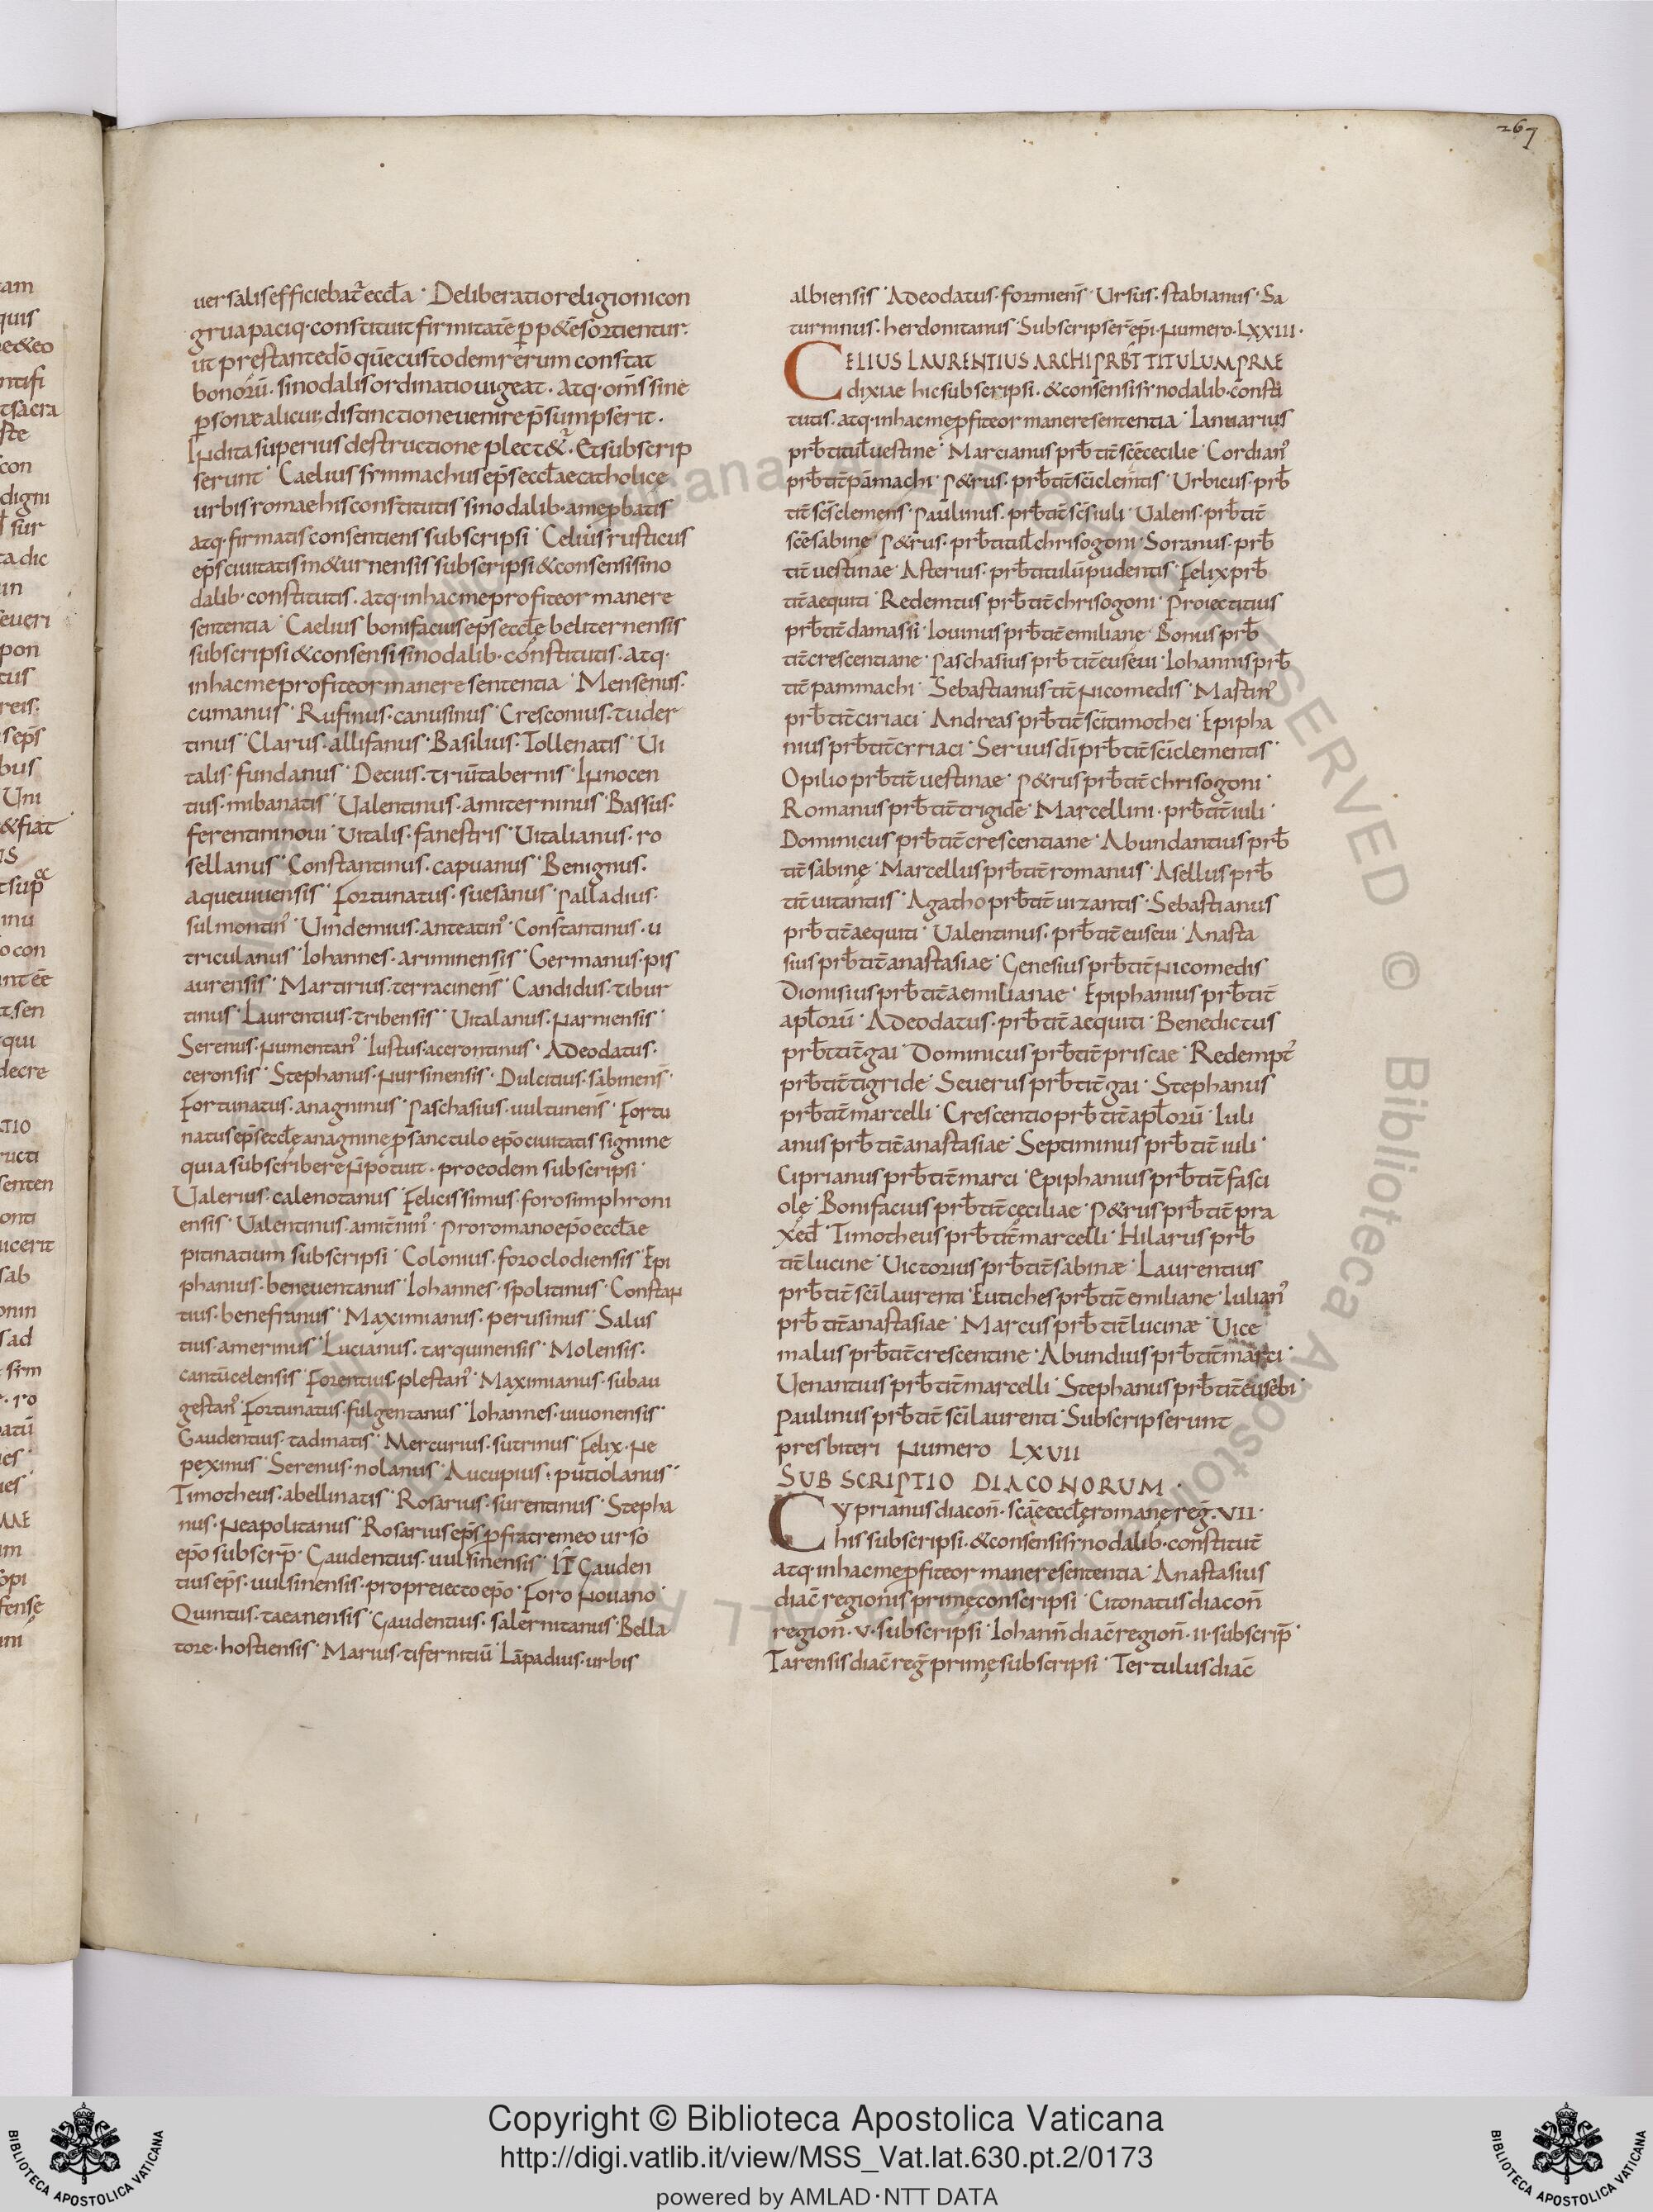 267
uersalis efficiebat̃ eccl̄a · Deliberatio religioni con
grua paciq· constituit firmitatē ꝑp&ẽ sortientur·
ut prestante dõ quẽ custodem rerum constat
bonorũ· sinodalis ordinatio uigeat· atq· om̃s sine
ꝑsonæ alicui; distinctione uenire p̃sumpserit·
Indita superius destructione plect&̃· Et subscrip
serunt · Caelius simmachus ep̃s eccl̄ae catholicę
urbis romae his constitutis sinodalib· a me ꝓbatis
atq· firmatis consentiens subscripsi · Celius rusticus
ep̃s ciuitatis m&urnensis subscripsi & consensi sino
dalib· constitutis· atq· in hac me profiteor manere
sententia · Caelius bonifacius ep̃s eccl̄ę beliternensis
subscripsi & consensi sinodalib· constitutis· atq·
in hac me profiteor manere sententia · Mensenus·
cumanus · Rufinus· canusinus · Cresconius· tuder
tinus · Clarus· allifanus · Basilius· Tollenatis · Ui
talis· fundanus · Decius· triũ tabernis · Innocen
tius· mibanatis · Ualentinus· amiterninus · Bassus·
ferentini noui · Uitalis· fanestris · Uitalianus· ro
sellanus · Constantinus· capuanus · Benignus·
aqueuiuensis · Fortunatus· suesanus · Palladius·
sulmontin᾿ · Uindemius· anteatin᾿ · Constantinus· u
triculanus · Iohannes· ariminensis · Germanus· pis
aurensis · Martirius· terracinens̃ · Candidus· tibur
tinus · Laurentius· tribensis · Uitalanus· narniensis ·
Serenus· numentan᾿ · Iustus· acerontinus · Adeodatus·
ceronsis · Stephanus· nursinensis · Dulcitius· sabinens̃ ·
Fortunatus· anagninus · Paschasius· uultunens̃ · Fortu
natus ep̃s eccl̄ę anagnine ꝓ sanctulo ep̃o ciuitatis signine
quia subscribere ñ potuit· pro eodem subscripsi ·
Ualerius· calenotanus · Felicissimus· forosimphroni
ensis · Ualentinus· amit̃nin᾿ · Pro romano ep̃o eccl̄ae
pitinatium subscripsi · Colonius· foroclodiensis · Epi
phanius· beneuentanus · Iohannes· spolitinus · Constan
tius· benefranus · Maximianus· perusinus · Salus
tius· amerinus · Lucianus· tarquinensis · Molensis·
cantũcelensis · Forentius· plestan᾿ · Maximianus· subau
gestan᾿ · Fortunatus· fulgentanus · Iohannes· uiuonensis ·
Gaudentius· tadinatis · Mercurius· sutrinus · Felix· ne
pexinus · Serenus· nolanus · Aucupius· pũtiolanus ·
Timotheus· abellinatis · Rosarius· surentinus · Stepha
nus· neapolitanus · Rosarius ep̃s ꝓ fratre meo urso
ep̃o subscrp̃· Gaudentius· uulsinensis · It̃ Gauden
tius ep̃s· uulsinensis· pro preiecto ep̃o · Foro nouano ·
Quintus· taeanensis · Gaudentius· salernitanus · Bella
tore· hostiensis · Marius· tifernitiũ · Lãpadius· urbis
albiensis · Adeodatus· formiens̃ · Ursus· stabianus · Sa
turninus· herdonitanus · Subscripser̃ ep̃i· numero· LXXIII·
CELIUS LAURENTIUS ARCHIPRBT̃ TITULUM PRAE
dixiae hic subscripsi· & consensi sinodalib· consti
tutis· atq· in hac me ꝓfiteor manere sententia · Ianuarius
prb̄ titul̄ uestine · Marcianus prb̄ tit̃ sc̃e cecilie · Cordian᾿
prb̄ tit̃ pãmachi · P&rus· prb̄ tit̃ sc̃i clementis · Urbicus· prb̄
tit̃ sc̃s clemens · Paulinus· prb̄ tit̃ sc̃s iuli · Ualens· prb̄ tit̃
sc̃e sabinę · P&rus· prb̄ titul̄ chrisogoni · Soranus· prb̄
tit̃ uestinae · Asterius· prb̄ titulũ pudentis · Felix prb̄
tit̃ aequiti · Redemtus prb̄ tit̃ chrisogoni · Proiectitius
prb̄ tit̃ damassi · Iouinus prb̄ tit̃ emiliane · Bonus prb̄
tit̃ crescentiane · Paschasius prb̄ tit̃ euseui · Iohannis prb̄
tit̃ pammachi · Sebastianus tit̃ nicomedis · Mastin᾿
prb̄ tit̃ ciriaci · Andreas prb̄ tit̃ sc̃i timothei · Epipha
nius prb̄ tit̃ crriaci · Seruus dĩ prb̄ tit̃ sc̃i clementis ·
Opilio prb̄ tit̃ uestinae · P&rus prb̄ tit̃ chrisogoni ·
Romanus prb̄ tit̃ trigide · Marcellini· prb̄ tit̃ iuli ·
Dominicus prb̄ tit̃ crescentiane · Abundantius prb̄
tit̃ sabinę · Marcellus prb̄ tit̃ romanus · Asellus prb̄
tit̃ uitantis · Agatho prb̄ tit̃ uizantis · Sebastianus
prb̄ tit̃ aequiti · Ualentinus· prb̄ tit̃ euseui · Anasta
sius prb̄ tit̃ anastasiae · Genesius prb̄ tit̃ nicomedis
Dionisius prb̄ tit̃ aemilianae · Epiphanius prb̄ tit̃
apl̄orũ · Adeodatus· prb̄ tit̃ aequiti · Benedictus
prb̄ tit̃ gai · Dominicus prb̄ tit̃ priscae · Redempt᾿
prb̄ tit̃ tigride · Seuerus prb̄ tit̃ gai · Stephanus
prb̄ tit̃ marcelli · Crescentio prb̄ tit̃ apl̄orũ · Iuli
anus prb̄ tit̃ anastasiae · Septiminus prb̄ tit̃ iuli ·
Ciprianus prb̄ tit̃ marci · Epiphanius prb̄ tit̃ fasci
olę · Bonifacius prb̄ tit̃ cęciliae · P&rus prb̄ tit̃ pra
xed̄ · Timotheus prb̄ tit̃ marcelli · Hilarus prb̄
tit̃ lucine · Uictorius prb̄ tit̃ sabinæ · Laurentius
prb̄ tit̃ sc̃i laurenti · Eutiches prb̄ tit̃ emiliane · Iulian᾿
prb̄ tit̃ anastasiae · Marcus prb̄ tit̃ lucinæ · Uice
malus prb̄ tit̃ crescentine · Abundius prb̄ tit̃ marci ·
Uenantius prb̄ tit̃ marcelli · Stephanus prb̄ tit̃ eusebi ·
Paulinus prb̄ tit̃ sc̃i laurenti · Subscripserunt
presbiteri numero LXVII
SUBSCRIPTIO DIACONORUM ·
Cyprianus diacoñ· sc̃ae eccl̄ę romanę reg̃· VII·
his subscripsi· & consensi sinodalib· constitut̃
atq· in hac me ꝓfiteor manere sententia · Anastasius
diac̃ regionis primę conscripsi · Citonatus diacoñ
regioñ· V· subscripsi · Iohanñ diac̃ regioñ· II· subscrip̃ ·
Tarensis diac̃ reg̃ primę subscripsi · Tertulus diac̃
Copyright © Biblioteca Apostolica Vaticana
http://digi.vatlib.it/view/MSS_Vat.lat.630.pt.2/0173
powered by AMLAD·NTT DATA